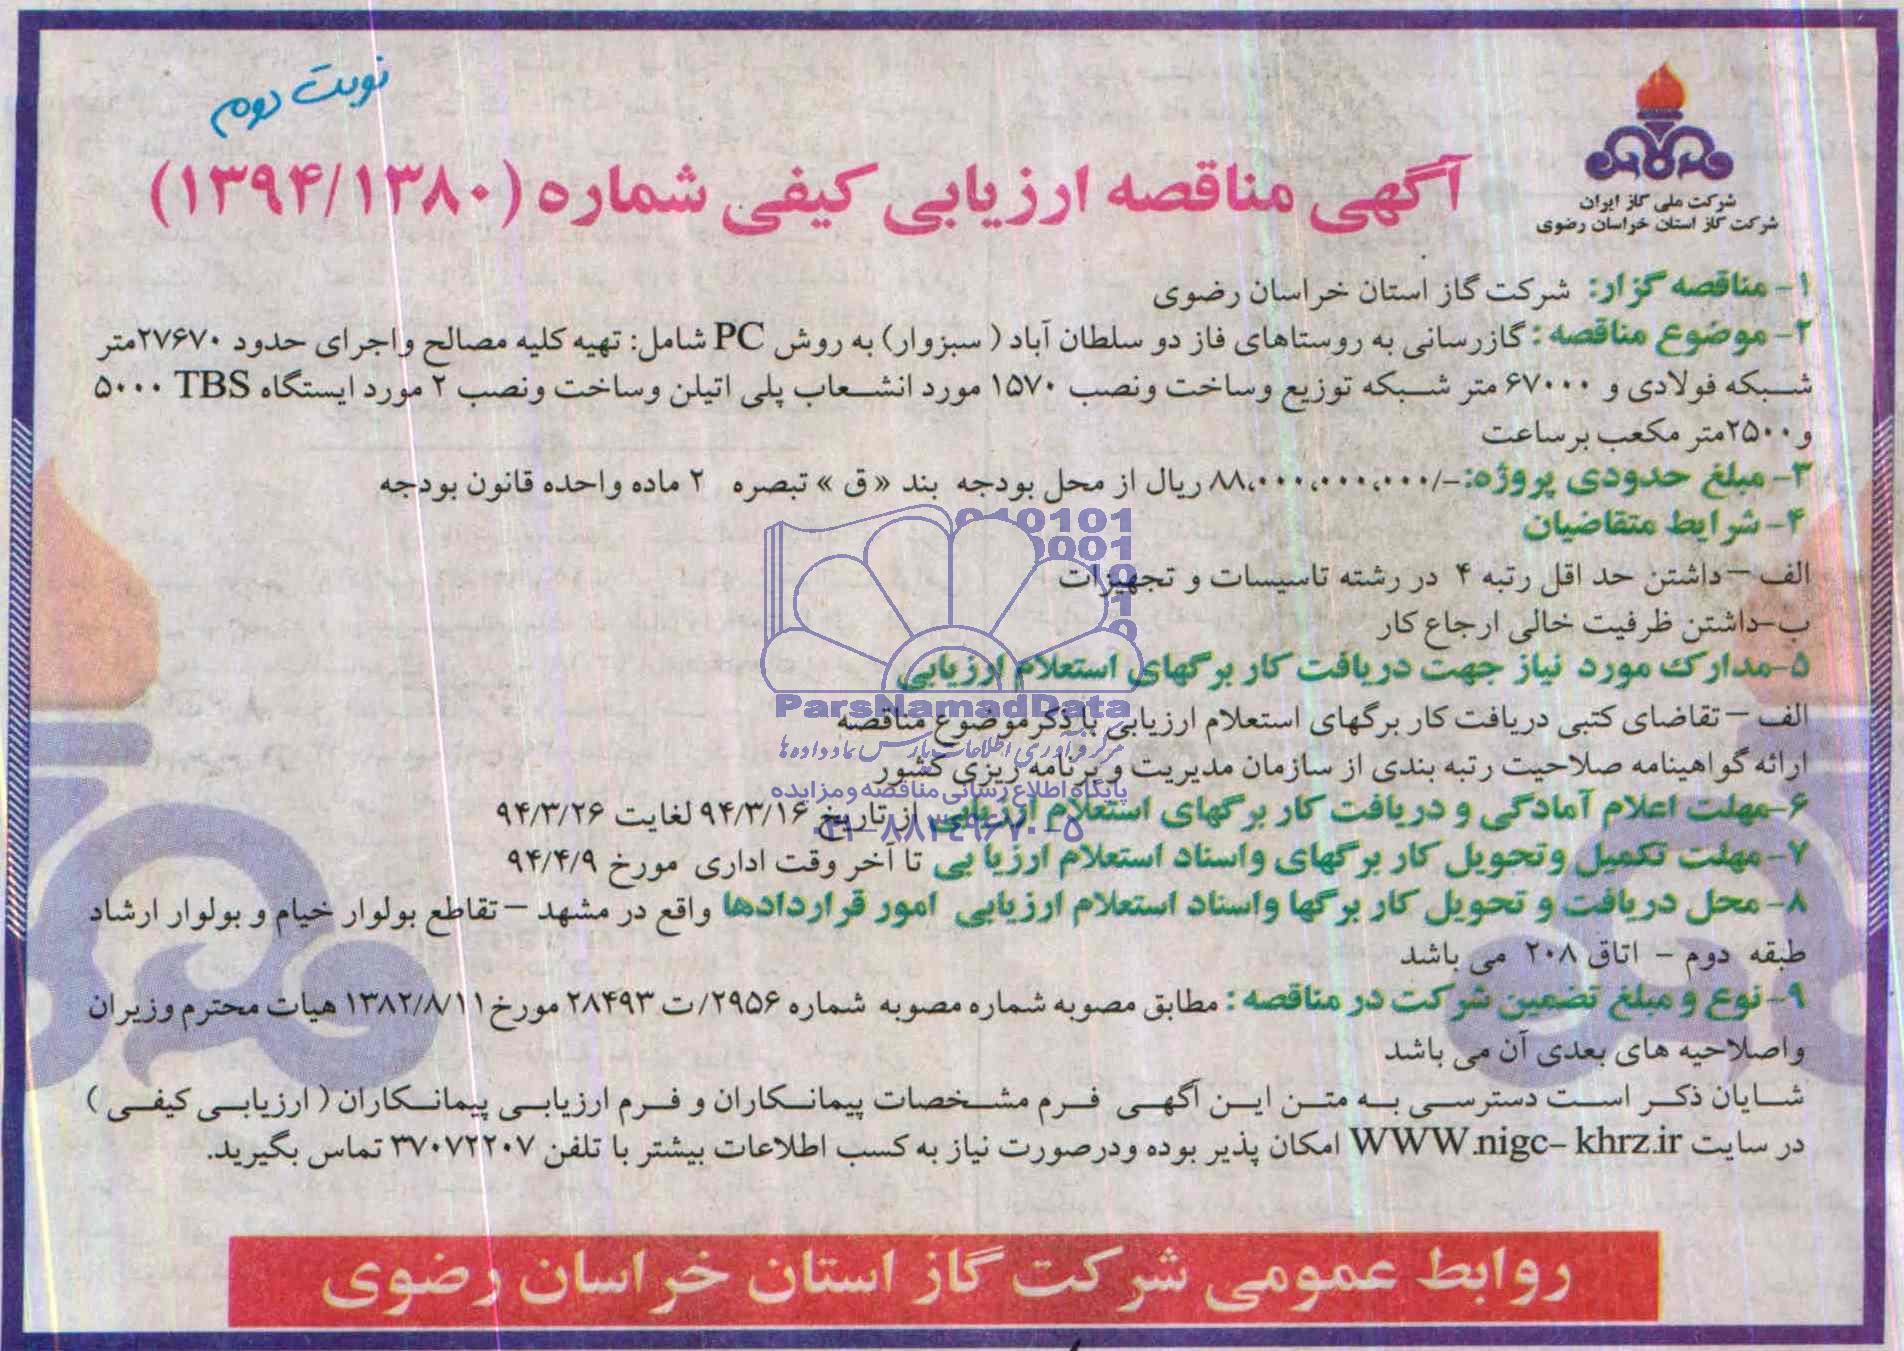 نوبت دوم
شرکت ملی گاز ایران
شرکت گاز استان خراسان رضوی
آگهی مناقصه ارزیابی کیفی شماره (۱۳۹۴/۱۳۸۰)
۱- مناقصه گزار: شرکت گاز استان خراسان رضوی
۲- موضوع مناقصه : گازرسانی به روستاهای فاز دو سلطان آباد ( سبزوار) به روش PC شامل: تهیه کلیه مصالح واجرای حدود ۲۷۶۷۰متر
شبکه فولادی و ۶۷۰۰۰ متر شبکه توزیع وساخت ونصب ۱۵۷۰ مورد انشعاب پلی اتیلن وساخت ونصب ۲ مورد ایستگاه TBS ۵۰۰۰
و ۲۵۰۰متر مکعب برساعت
۳- مبلغ حدودی پروژه: -/۸۸،۰۰۰،۰۰۰،۰۰۰ ریال از محل بودجه بند « ق » تبصره ۲ ماده واحده قانون بودجه
۴- شرایط متقاضیان
الف – داشتن حد اقل رتبه ۴ در رشته تاسیسات و تجهیزات
ب-داشتن ظرفیت خالی ارجاع کار
۵-مدارک مورد نیاز جهت دریافت کار برگهای استعلام ارزیابی
الف – تقاضای کتبی دریافت کار برگهای استعلام ارزیابی با ذکر موضوع مناقصه
ارائه گواهینامه صلاحیت رتبه بندی از سازمان مدیریت و برنامه ریزی کشور
۶-مهلت اعلام آمادگی و دریافت کار برگهای استعلام ارزیابی از تاریخ ۹۴/۳/۱۶ لغایت ۹۴/۳/۲۶
۷- مهلت تکمیل وتحویل کار برگهای واسناد استعلام ارزیا بی تا آخر وقت اداری مورخ ۹۴/۴/۹
۸- محل دریافت و تحویل کار برگها واسناد استعلام ارزیابی امور قراردادها واقع در مشهد – تقاطع بولوار خیام و بولوار ارشاد
طبقه دوم - اتاق ۲۰۸ می باشد
۹- نوع و مبلغ تضمین شرکت در مناقصه : مطابق مصوبه شماره مصوبه شماره ۲۹۵۶/ت ۲۸۴۹۳ مورخ ۱۳۸۲/۸/۱۱ هیات محترم وزیران
واصلاحیه های بعدی آن می باشد
شایان ذکر است دسترسی به متن این آگهی فرم مشخصات پیمانکاران و فرم ارزیابی پیمانکاران ( ارزیابی کیفی )
در سایت WWW.nigc- khrz.ir امکان پذیر بوده ودرصورت نیاز به کسب اطلاعات بیشتر با تلفن ۳۷۰۷۲۲۰۷ تماس بگیرید.
روابط عمومی شرکت گاز استان خراسان رضوی
ParsNamadData
مرکز فرآوری اطلاعات پارس نماد داده ها
پایگاه اطلاع رسانی مناقصه و مزایده
۰۲۱-۸۸۳۴۹۶۷۰-۵